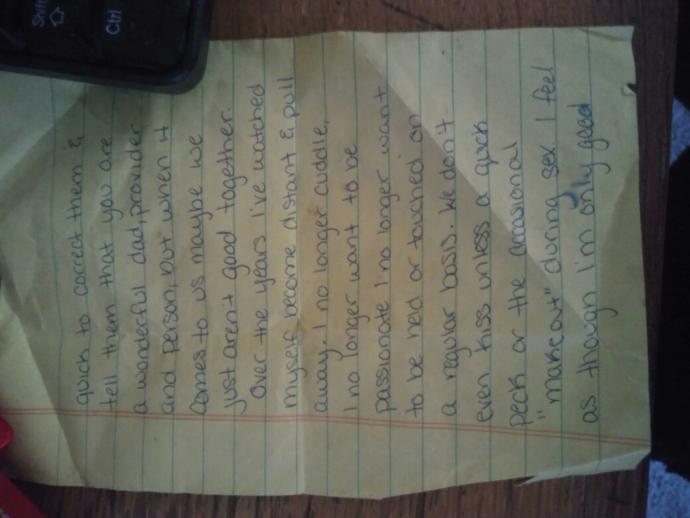 Shift
Ctrl
quick to correct them &
tell them that you are
a wonderful dad, provider
and person, but when it
comes to us maybe we
just aren't good together.
Over the years I've watched
myself become distant & pull
away. I no longer cuddle,
I no longer want to be
passionate I no longer want
to be held or touched on
a regular basis. We don't
even kiss unless a quick
peck or the occasional
"makeout" during sex. I feel
as though I'm only good